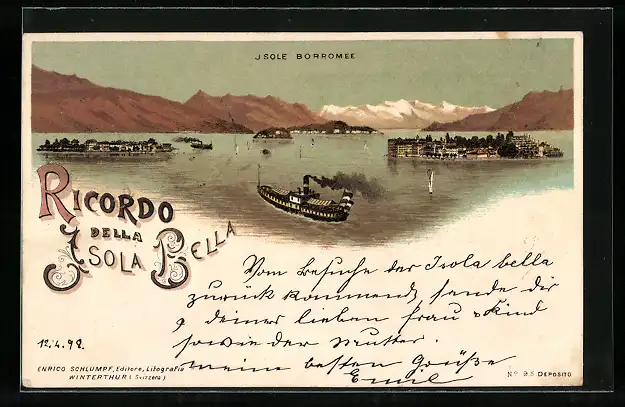 JSOLE BORROMEE
RICORDO
DELLA
ISOLA BELLA
Vom Besuche der Isola bella
zurück kommend, sende dir
& deiner lieben Frau & Kind
sowie der Mutter.
meine besten Grüße
Emil
12./4.98.
ENRICO SCHLUMPF, Editore, Litografia
WINTERTHUR (Svizzera)
No 95 DEPOSITO